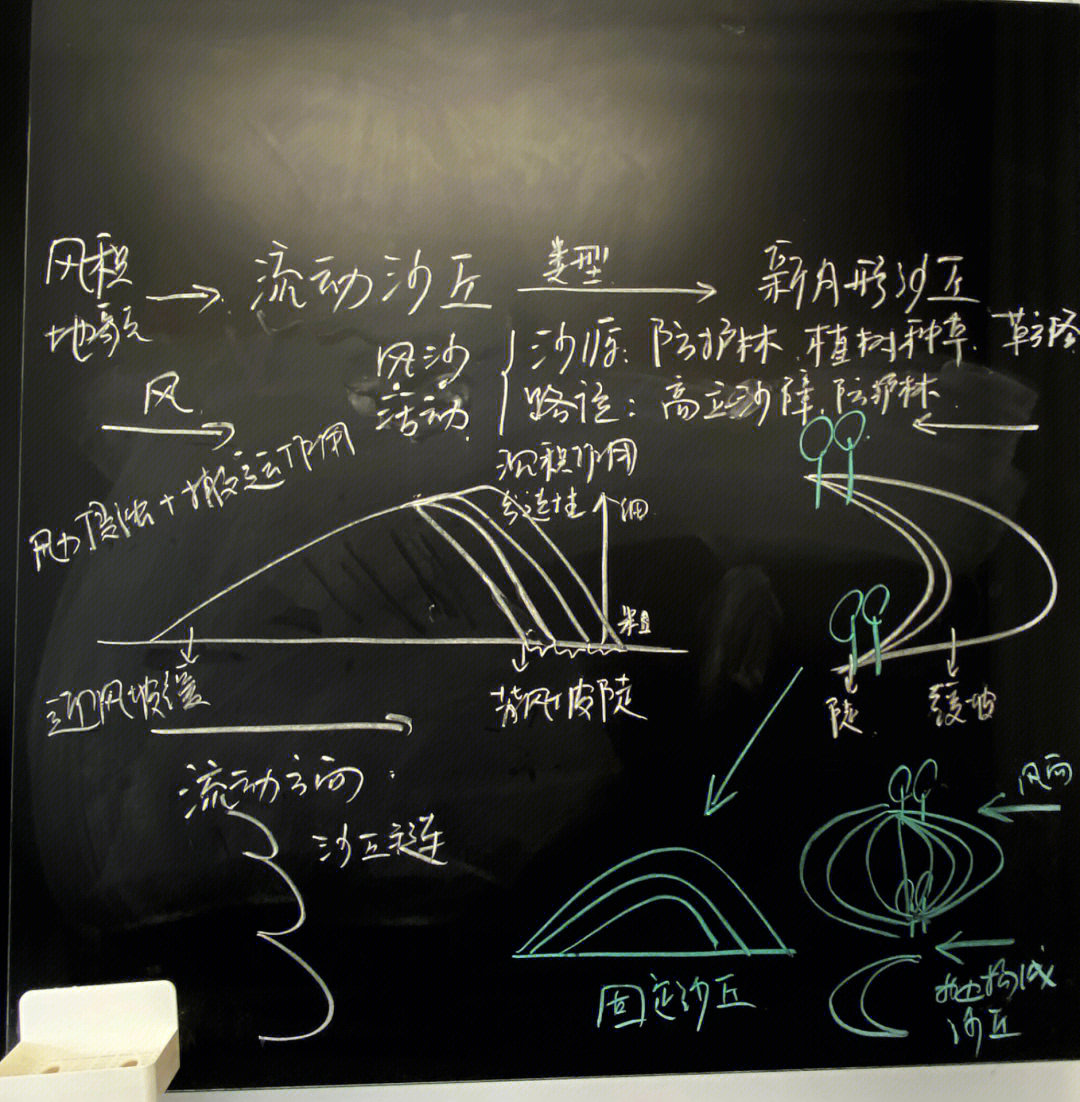 风积地貌 → 流动沙丘 类型 → 新月形沙丘
风沙活动
沙源: 防护林 植树种草
路径: 高立沙障 防护林
风
风力侵蚀+搬运作用
沉积作用
分选性
细
粗
迎风坡缓
背风坡陡
陡
缓坡
流动方向:
沙丘链
风向
固定沙丘
抛物线
沙丘